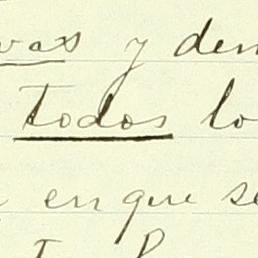 y den
Todos lo
en que se